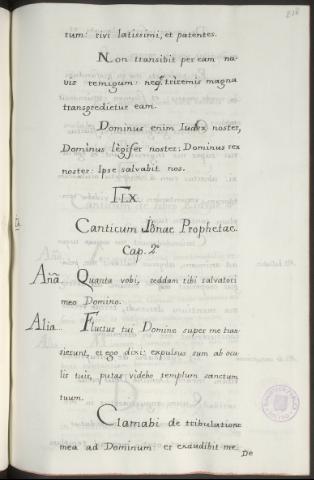 tum: rivi latissimi, et patentes.
Non transibit per eam na-
vis remigum: neq. triremis magna
transgredietur eam.
Dominus enim Iudex noster,
Dominus legifer noster: Dominus rex
noster: Ipse salvabit nos.
Canticum Jonae Prophetae.
Cap. 2º
Aña. Quanta vobi, reddam tibi salvatori
meo Domino.
Alia... Fluctus tui Domine super me tran-
sierunt, et ego dixi: expulsus sum ab ocu-
lis tuis, putas videbo templum sanctum
tuum.
Clamabi de tribulatione
mea ad Dominum et exaudibit me
De